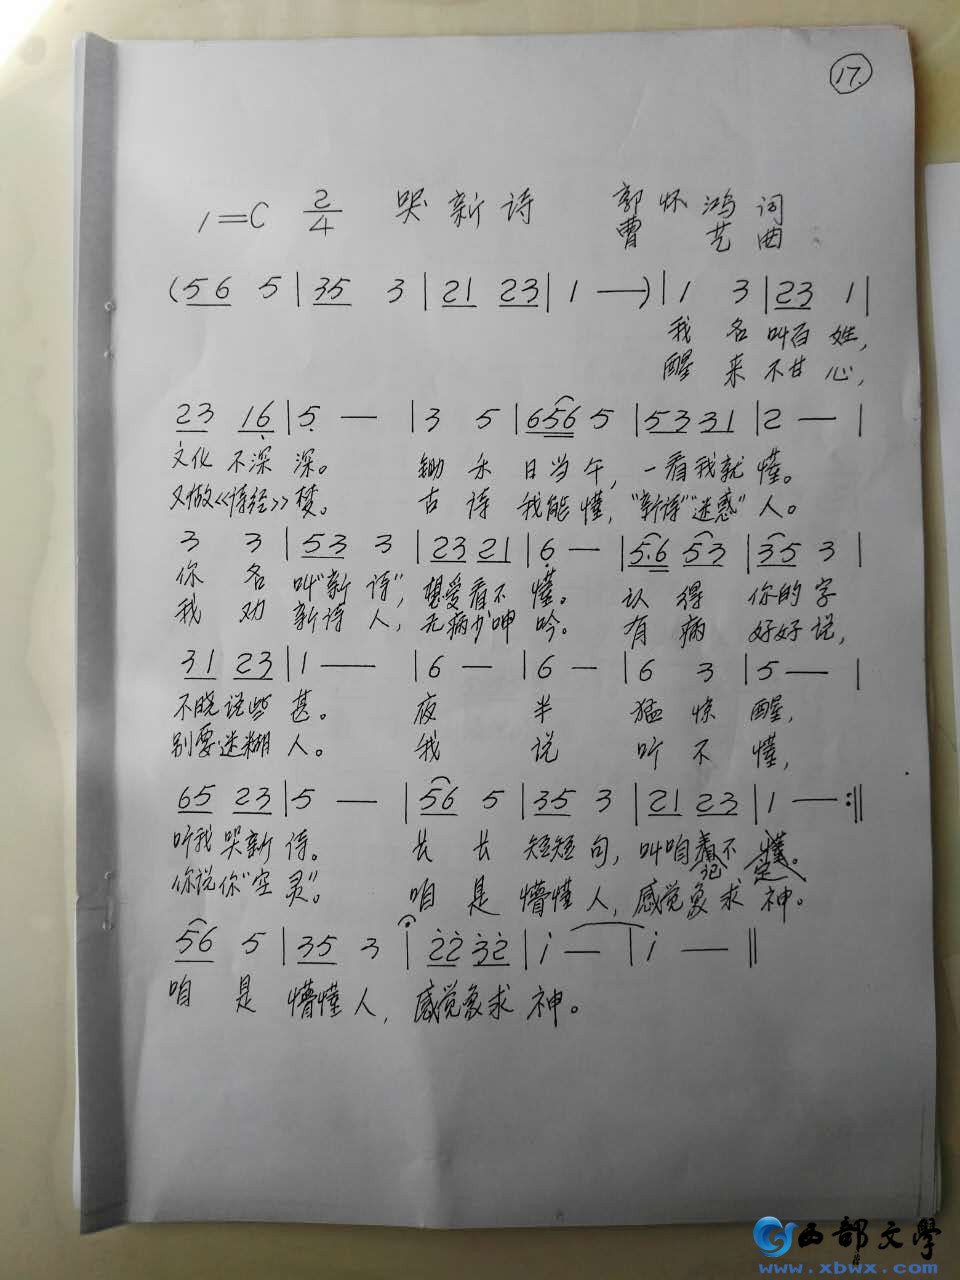 17.
1=C 2/4 哭新诗 郭怀鸿 词
曹艺 曲
(56 5 | 35 3 | 21 23 | 1 —) | 1 3 | 23 1 |
我名叫百姓,
醒来不甘心,
23 16 | 5 — | 3 5 | 656 5 | 53 31 | 2 — |
文化不深深。 锄禾日当午, 一看我就懂。
又做《诗经》梦。 古诗我能懂, "新诗""迷惑"人。
3 3 | 53 3 | 23 21 | 6 — | 5·6 53 | 35 3 |
你名叫"新诗", 想爱看不懂。 认得你的字
我劝新诗人, 无病少呻吟。 有病好好说,
31 23 | 1 — | 6 — | 6 — | 6 3 | 5 — |
不晓说些甚。 夜半猛惊醒,
别要迷糊人。 我说听不懂,
65 23 | 5 — | 56 5 | 35 3 | 21 23 | 1 — :‖
听我哭新诗。 长长短短句, 叫咱看不懂。
记 定
你说你"空灵"。 咱是懵懂人, 感觉象求神。
56 5 | 35 3 | 22 32 | 1 — | 1 — ‖
咱是懵懂人, 感觉象求神。
西部文學
www.xbwx.com